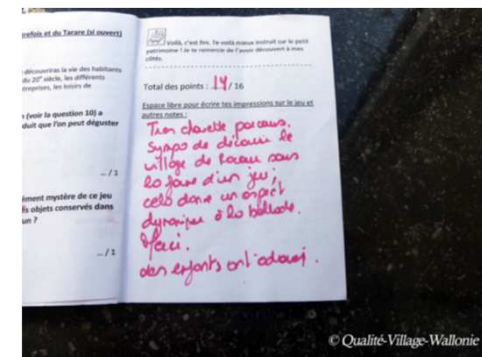 refois et du Tarare (si ouvert)
découvriras la vie des habitants
du 20e siècle, les différents
treprises, les loisirs de
(voir la question 10) a
duit que l'on peut déguster
.../1
ément mystère de ce jeu
s objets conservés dans
un ?
.../1
Voilà, c'est fini. Te voilà mieux instruit sur le petit
patrimoine ! Je te remercie de l'avoir découvert à mes
côtés.
Total des points : 14/16
Espace libre pour écrire tes impressions sur le jeu et
autres notes :
Très chouette parcours.
Sympa de découvrir le
village de sous
la forme d'un jeu,
cela donne un aspect
dynamique à la ballade.
Merci.
Les enfants ont adoré.
© Qualité-Village-Wallonie